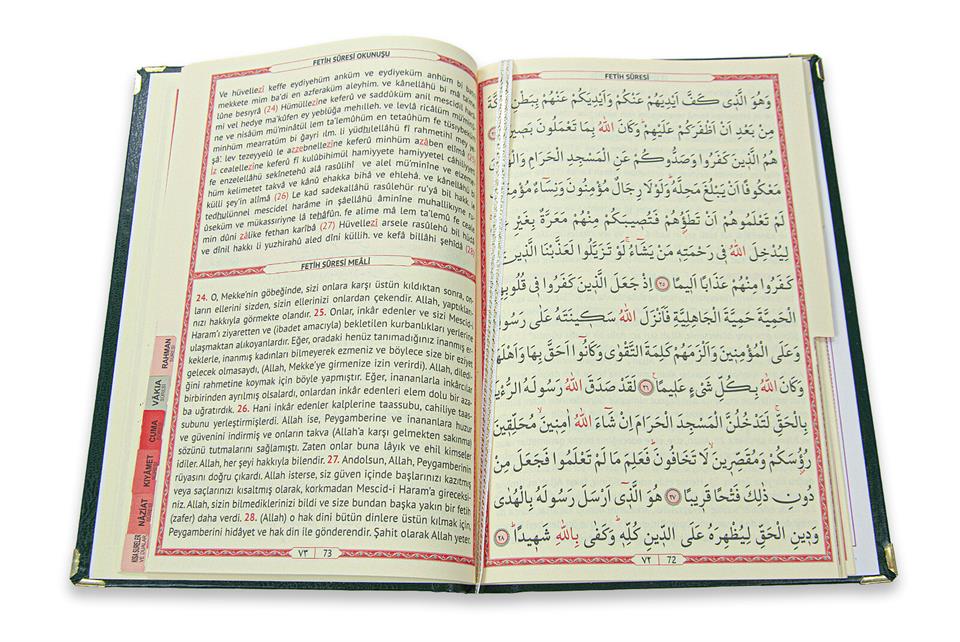 FETİH SÛRESİ OKUNUŞU
Ve hüvellezî keffe eydiyehüm anküm ve eydiyeküm anhüm bi batni
mekkete mim ba'di en azferaküm aleyhim. ve kânellâhü bi mâ
lûne besıyrâ (24) Hümüllezîne keferû ve saddûküm anil mescidil
mi vel hedye ma'kûfen ey yeblüğa mehılleh. ve levlâ ricâlüm
ne ve nisâüm mü'minâtül lem ta'lemûhüm en tetaûhüm fe
minhüm mearratüm bi ğayri ılm. li yüdhılellâhü fî rahmetihî mey
şâ'. lev tezeyyelû le azzebnellezîne keferû minhüm azâben elîmâ (25)
İz cealellezîne keferû fî kulûbihimül hamiyyete hamiyyetel
fe enzelellâhü sekînetehû alâ rasûlihî ve alel mü'minîne ve
hüm kelimetet takvâ ve kânû ehakka bihâ ve ehlehâ. ve kânellâhü
külli şey'in alîmâ (26) Le kad sadekallâhü rasûlehür ru'yâ bil hakk
tedhulünnel mescidel harâme in şâellâhü âminîne muhallikıyne
ûseküm ve mükassırıyne lâ tehâfûn. fe alime mâ lem ta'lemû fe
min dûni zâlike fethan karîbâ (27) Hüvellezî arsele rasûlehû bil
ve dînil hakkı li yuzhirahû aled dîni küllih. ve kefâ billâhi şehîdâ (28)
FETİH SÛRESİ MEÂLİ
24. O, Mekke'nin göbeğinde, sizi onlara karşı üstün kıldıktan sonra, on-
ların ellerini sizden, sizin ellerinizi onlardan çekendir. Allah, yaptıkla-
nızı hakkıyla görmekte olandır. 25. Onlar, inkâr edenler ve sizi Mescid-i
Haram'ı ziyaretten ve (ibadet amacıyla) bekletilen kurbanlıkları yerlerine
ulaşmaktan alıkoyanlardır. Eğer, oradaki henüz tanımadığınız inanmış er-
keklerle, inanmış kadınları bilmeyerek ezmeniz ve böylece size bir eziyet
gelecek olmasaydı, (Allah, Mekke'ye girmenize izin verirdi). Allah, diledi-
ğini rahmetine koymak için böyle yapmıştır. Eğer, inananlarla inkârcılar
birbirinden ayrılmış olsalardı, onlardan inkâr edenleri elem dolu bir aza-
ba uğratırdık. 26. Hani inkâr edenler kalplerine taassubu, cahiliye taas-
subunu yerleştirmişlerdi. Allah ise, Peygamberine ve inananlara huzur
ve güvenini indirmiş ve onların takva (Allah'a karşı gelmekten sakınma)
sözünü tutmalarını sağlamıştı. Zaten onlar buna lâyık ve ehil kimseler
idiler. Allah, her şeyi hakkıyla bilendir. 27. Andolsun, Allah, Peygamberinin
rüyasını doğru çıkardı. Allah isterse, siz güven içinde başlarınızı kazıtmış
veya saçlarınızı kısaltmış olarak, korkmadan Mescid-i Haram'a gireceksi-
niz. Allah, sizin bilmediklerinizi bildi ve size bundan başka yakın bir fetih
(zafer) daha verdi. 28. (Allah) o hak dini bütün dinlere üstün kılmak için,
Peygamberini hidâyet ve hak din ile gönderendir. Şahit olarak Allah yeter.
٧٣ 73
RAHMAN
SÛRESİ
VÂKIA
SÛRESİ
CUMA
KIYÂMET
NÂZİÂT
KISA SÛRELER
VE DUALAR
FETİH SÛRESİ
وَهُوَ الَّذِى كَفَّ اَيْدِيَهُمْ عَنْكُمْ وَاَيْدِيَكُمْ عَنْهُمْ بِبَطْنِ
مِنْ بَعْدِ اَنْ اَظْفَرَكُمْ عَلَيْهِمْ وَكَانَ اللّٰهُ بِمَا تَعْمَلُونَ بَصِيرًا
هُمُ الَّذِينَ كَفَرُوا وَصَدُّوكُمْ عَنِ الْمَسْجِدِ الْحَرَامِ
مَعْكُوفًا اَنْ يَبْلُغَ مَحِلَّهُ وَلَوْلَا رِجَالٌ مُؤْمِنُونَ وَنِسَاءٌ
لَمْ تَعْلَمُوهُمْ اَنْ تَطَؤُهُمْ فَتُصِيبَكُمْ مِنْهُمْ مَعَرَّةٌ بِغَيْرِ
لِيُدْخِلَ اللّٰهُ فِى رَحْمَتِهِ مَنْ يَشَاءُ لَوْ تَزَيَّلُوا لَعَذَّبْنَا الَّذِينَ
كَفَرُوا مِنْهُمْ عَذَابًا اَلِيمًا ٢٥ اِذْ جَعَلَ الَّذِينَ كَفَرُوا فِى
الْحَمِيَّةَ حَمِيَّةَ الْجَاهِلِيَّةِ فَاَنْزَلَ اللّٰهُ سَكِينَتَهُ عَلٰى
وَعَلَى الْمُؤْمِنِينَ وَاَلْزَمَهُمْ كَلِمَةَ التَّقْوٰى وَكَانُوا اَحَقَّ بِهَا وَاَهْلَهَا
وَكَانَ اللّٰهُ بِكُلِّ شَىْءٍ عَلِيمًا ٢٦ لَقَدْ صَدَقَ اللّٰهُ رَسُولَهُ
بِالْحَقِّ لَتَدْخُلُنَّ الْمَسْجِدَ الْحَرَامَ اِنْ شَاءَ اللّٰهُ اٰمِنِينَ مُحَلِّقِينَ
رُؤُسَكُمْ وَمُقَصِّرِينَ لَا تَخَافُونَ فَعَلِمَ مَا لَمْ تَعْلَمُوا فَجَعَلَ مِنْ
دُونِ ذٰلِكَ فَتْحًا قَرِيبًا ٢٧ هُوَ الَّذِى اَرْسَلَ رَسُولَهُ بِالْهُدٰى
وَدِينِ الْحَقِّ لِيُظْهِرَهُ عَلَى الدِّينِ كُلِّهِ وَكَفٰى بِاللّٰهِ شَهِيدًا ٢٨
٧٢ 72